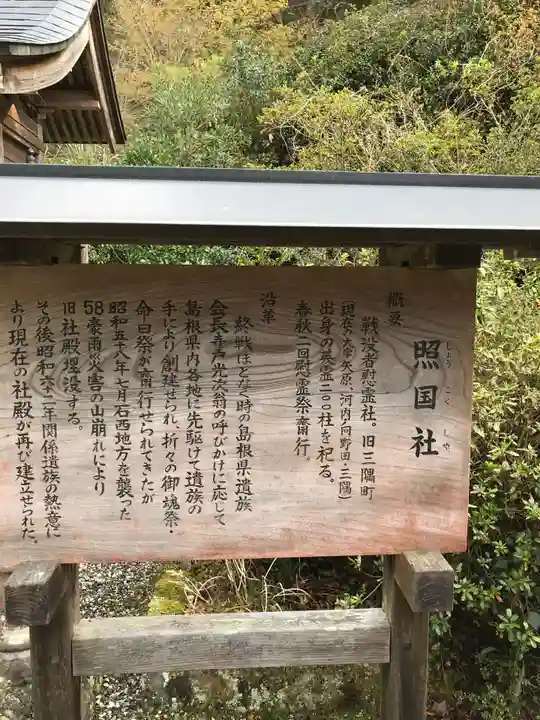 照国社
しょうこくしゃ
概要
戦没者慰霊社。旧三隅町
(現在の大字矢原・河内・向野田・三隅)
出身の英霊二〇〇柱を祀る。
春秋二回慰霊祭斎行。
沿革
終戦ほどなく時の島根県遺族
会長寺戸光次翁の呼びかけに応じて
島根県内各地に先駆けて遺族の
手により創建せられ、折々の御魂祭・
命日祭が斎行せられてきたが
昭和五八年七月石西地方を襲った
58豪雨災害の山崩れにより
旧社殿埋没する。
その後昭和六二年関係遺族の熱意に
より現在の社殿が再び建立せられた。